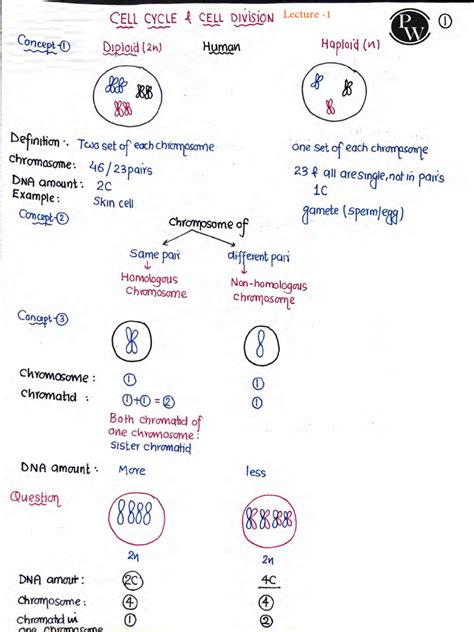 CELL CYCLE & CELL DIVISION Lecture -1
PW
①
Concept-① Diploid (2n) Human Haploid (n)
Definition :- Two set of each chromosome one set of each chromosome
Chromosome: 46/23 pairs 23 & all are single, not in pairs
DNA amount: 2C 1C
Example: Skin cell gamete (sperm/egg)
Concept-② Chromosome of
Same pair different pair
Homologous Non-homologous
Chromosome chromosome
Concept-③
Chromosome : ① ①
Chromatid : ①+① = ② ①
Both chromatid of
one chromosome:
Sister chromatid
DNA amount : More less
Question
2n 2n
DNA amount : 2C 4C
Chromosome : ④ ④
Chromatid in ① ②
one chromosome